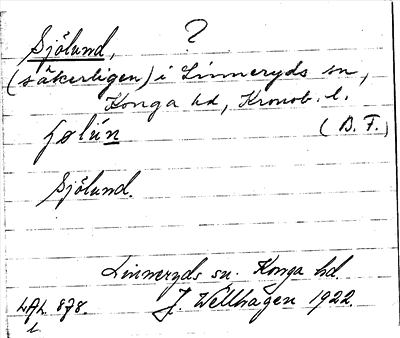 ?
Sjölund,
(säkerligen) i Linneryds sn,
Konga hd, Kronob. l.
(B. F.)
Sjölund.
Linneryds sn. Konga hd.
J. Wellhagen 1922.
878.